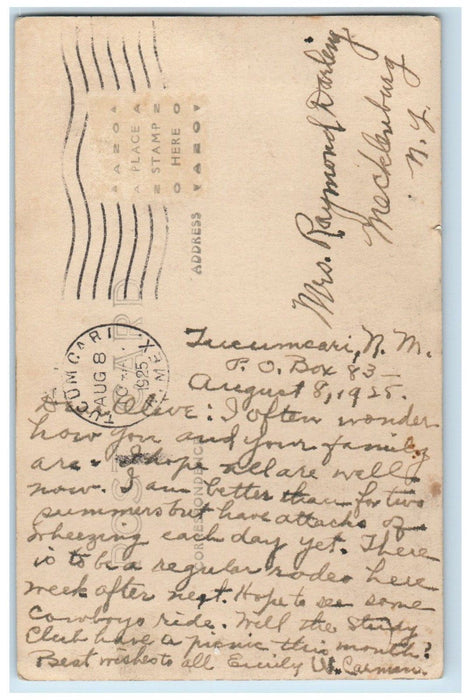 Mrs. Raymond Darling
Mecklenburg
N.Y.
PLACE
STAMP
HERE
AZO
ADDRESS
POST CARD
CORRESPONDENCE
TUCUMCARI
N. MEX.
AUG 8
1925
Tucumcari, N. M.
P. O. Box 83
August 8, 1925.
Dear Olive: I often wonder
how you and your family
are. I hope all are well
now. I am better than for two
summers but have attacks of
wheezing each day yet. There
is to be a regular rodeo here
week after next. Hope to see some
cowboys ride. Will the Study
Club have a picnic this month?
Best wishes to all Emily W. Carman.